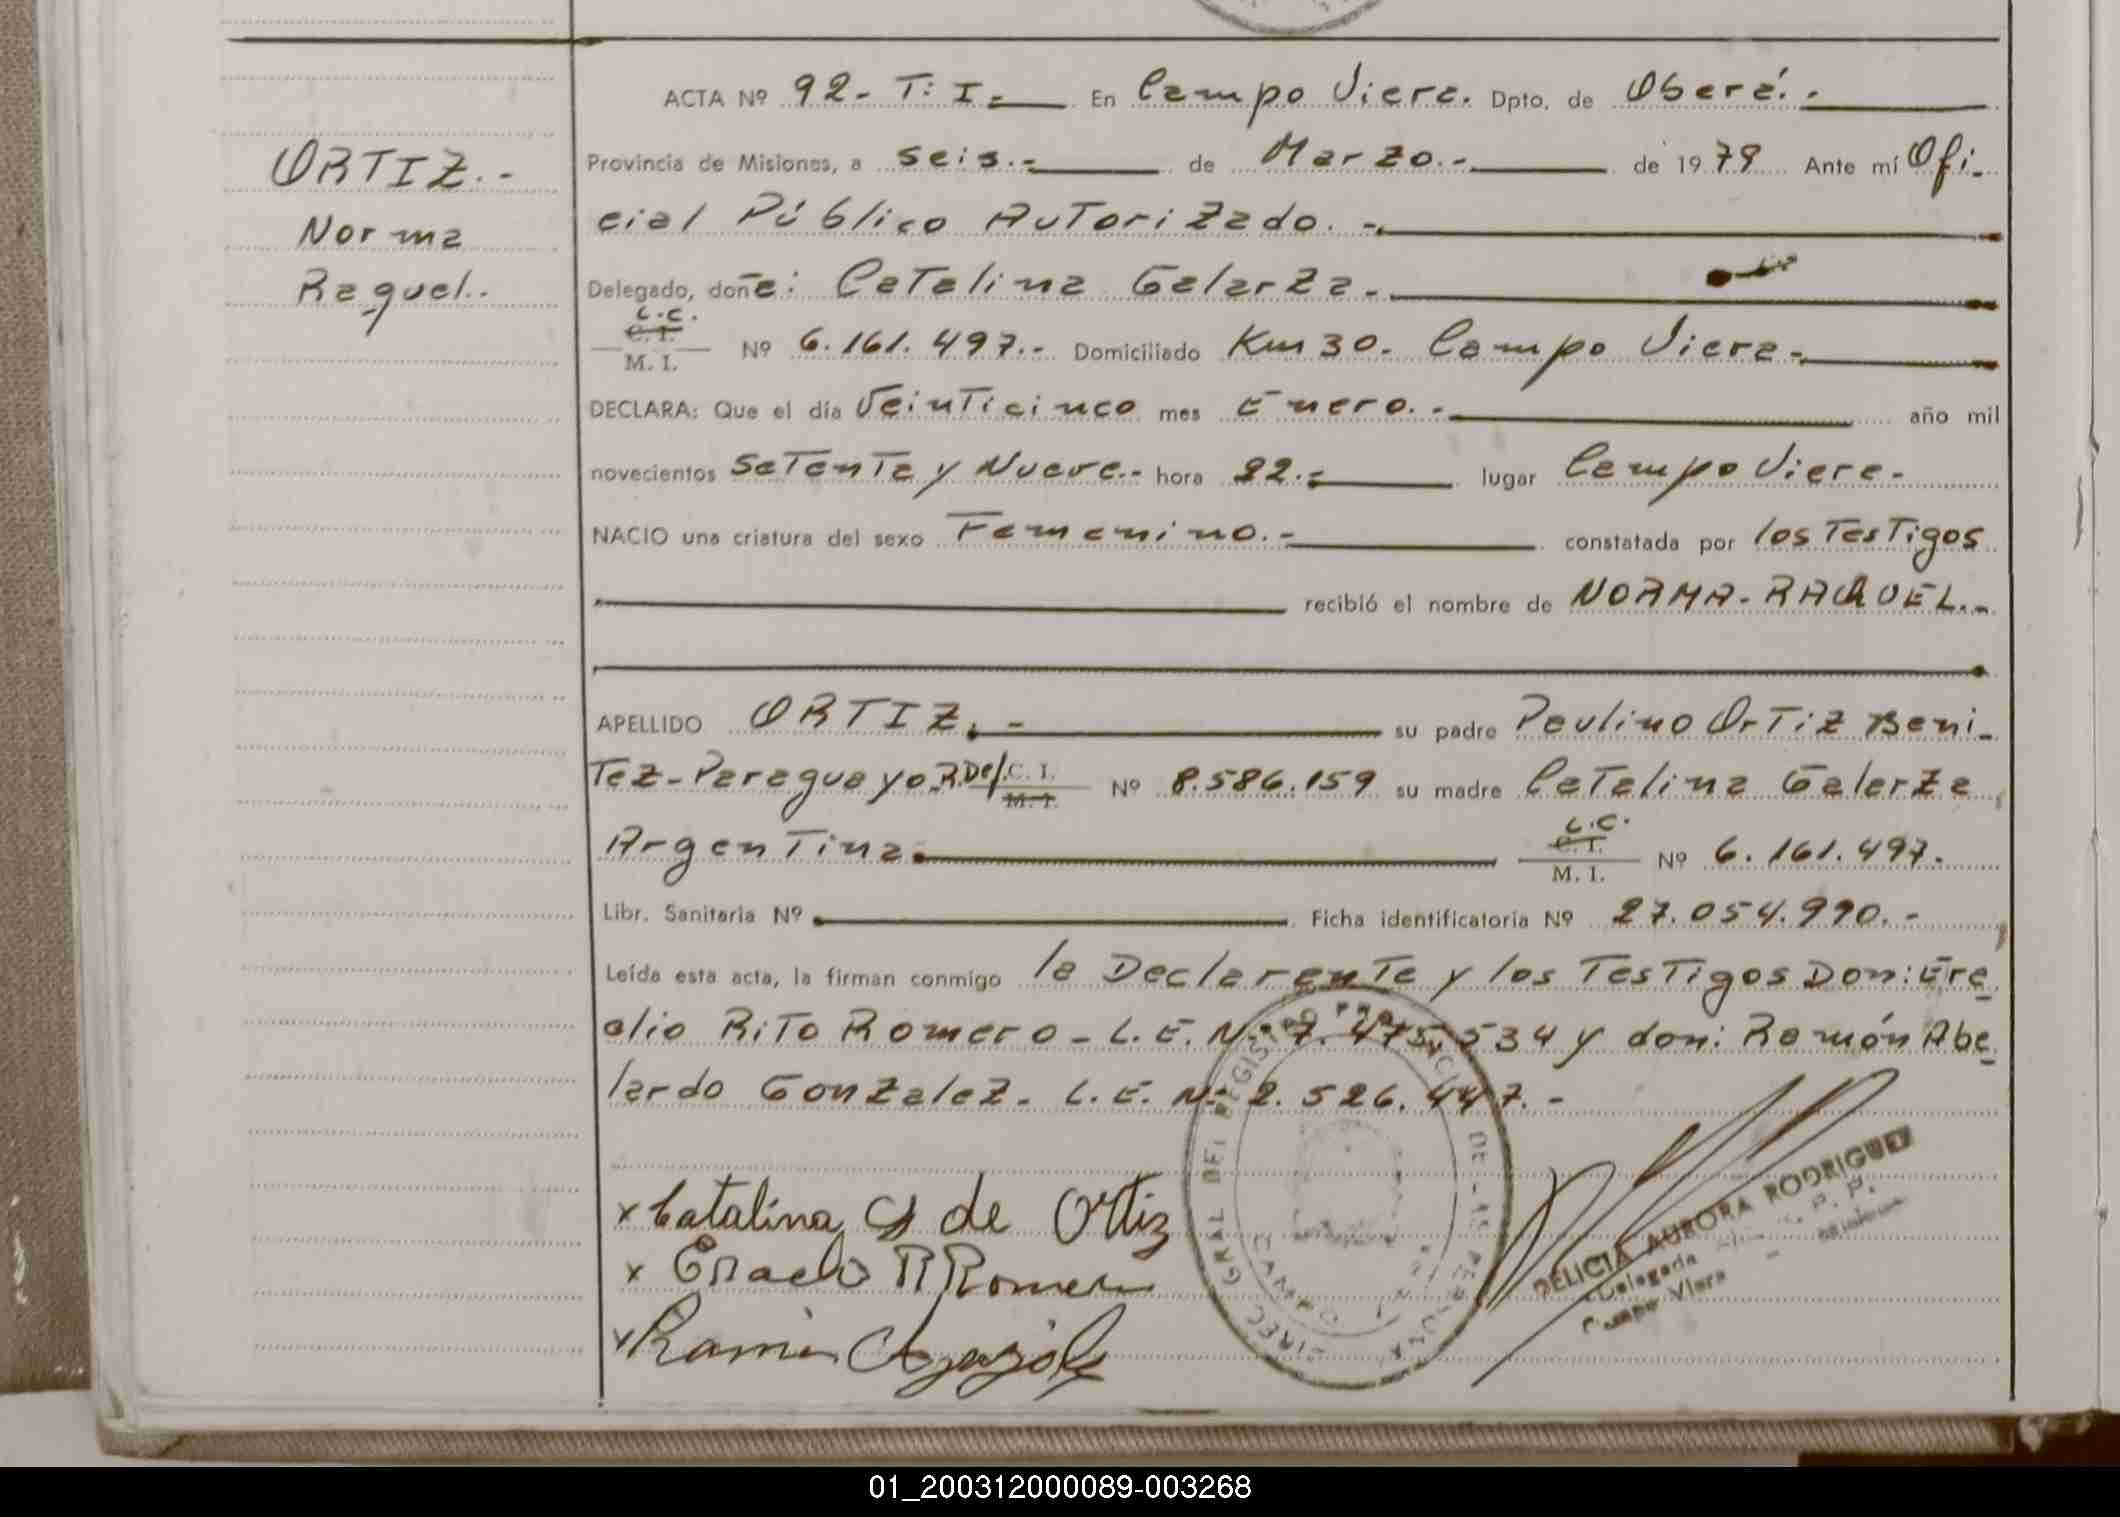 ORTIZ.-
Norma
Raquel.-
ACTA Nº 92- T: I.- En Campo Viera. Dpto. de Oberá.-
Provincia de Misiones, a seis.- de Marzo.- de 1979 Ante mí Ofi-
cial Público Autorizado.-
Delegado, doña: Catalina Galarza.-
L.C.
C. I.
M. I. Nº 6.161.497.- Domiciliado Km 30- Campo Viera.-
DECLARA: Que el día Veinticinco mes Enero.- año mil
novecientos Setenta y Nueve.- hora 22.- lugar Campo Viera-
NACIO una criatura del sexo Femenino.- constatada por los Testigos
recibió el nombre de NORMA-RAQUEL.-
APELLIDO ORTIZ.- su padre Paulino Ortiz Beni-
tez-Paraguayo R.Del. C. I. M. I. Nº 8.586.159 su madre Catalina Galarza
Argentina L.C. C. I. M. I. Nº 6.161.497.
Libr. Sanitaria Nº Ficha identificatoria Nº 27.054.990.-
Leída esta acta, la firman conmigo la Declarante y los Testigos Don: Era
clio Rito Romero- L.E. Nº 7.475.534 y don: Ramón Abe
lardo Gonzalez- L.E. Nº 2.526.447.-
x Catalina G de Ortiz
x Eraclo R Romero
x Ramon
DIREC. GRAL. DEL REGISTRO PROVINCIAL DE LAS PERSONAS
CAMPO VIERA
DELICIA AURORA RODRIGUEZ
Delegada
Campo Viera
01_200312000089-003268